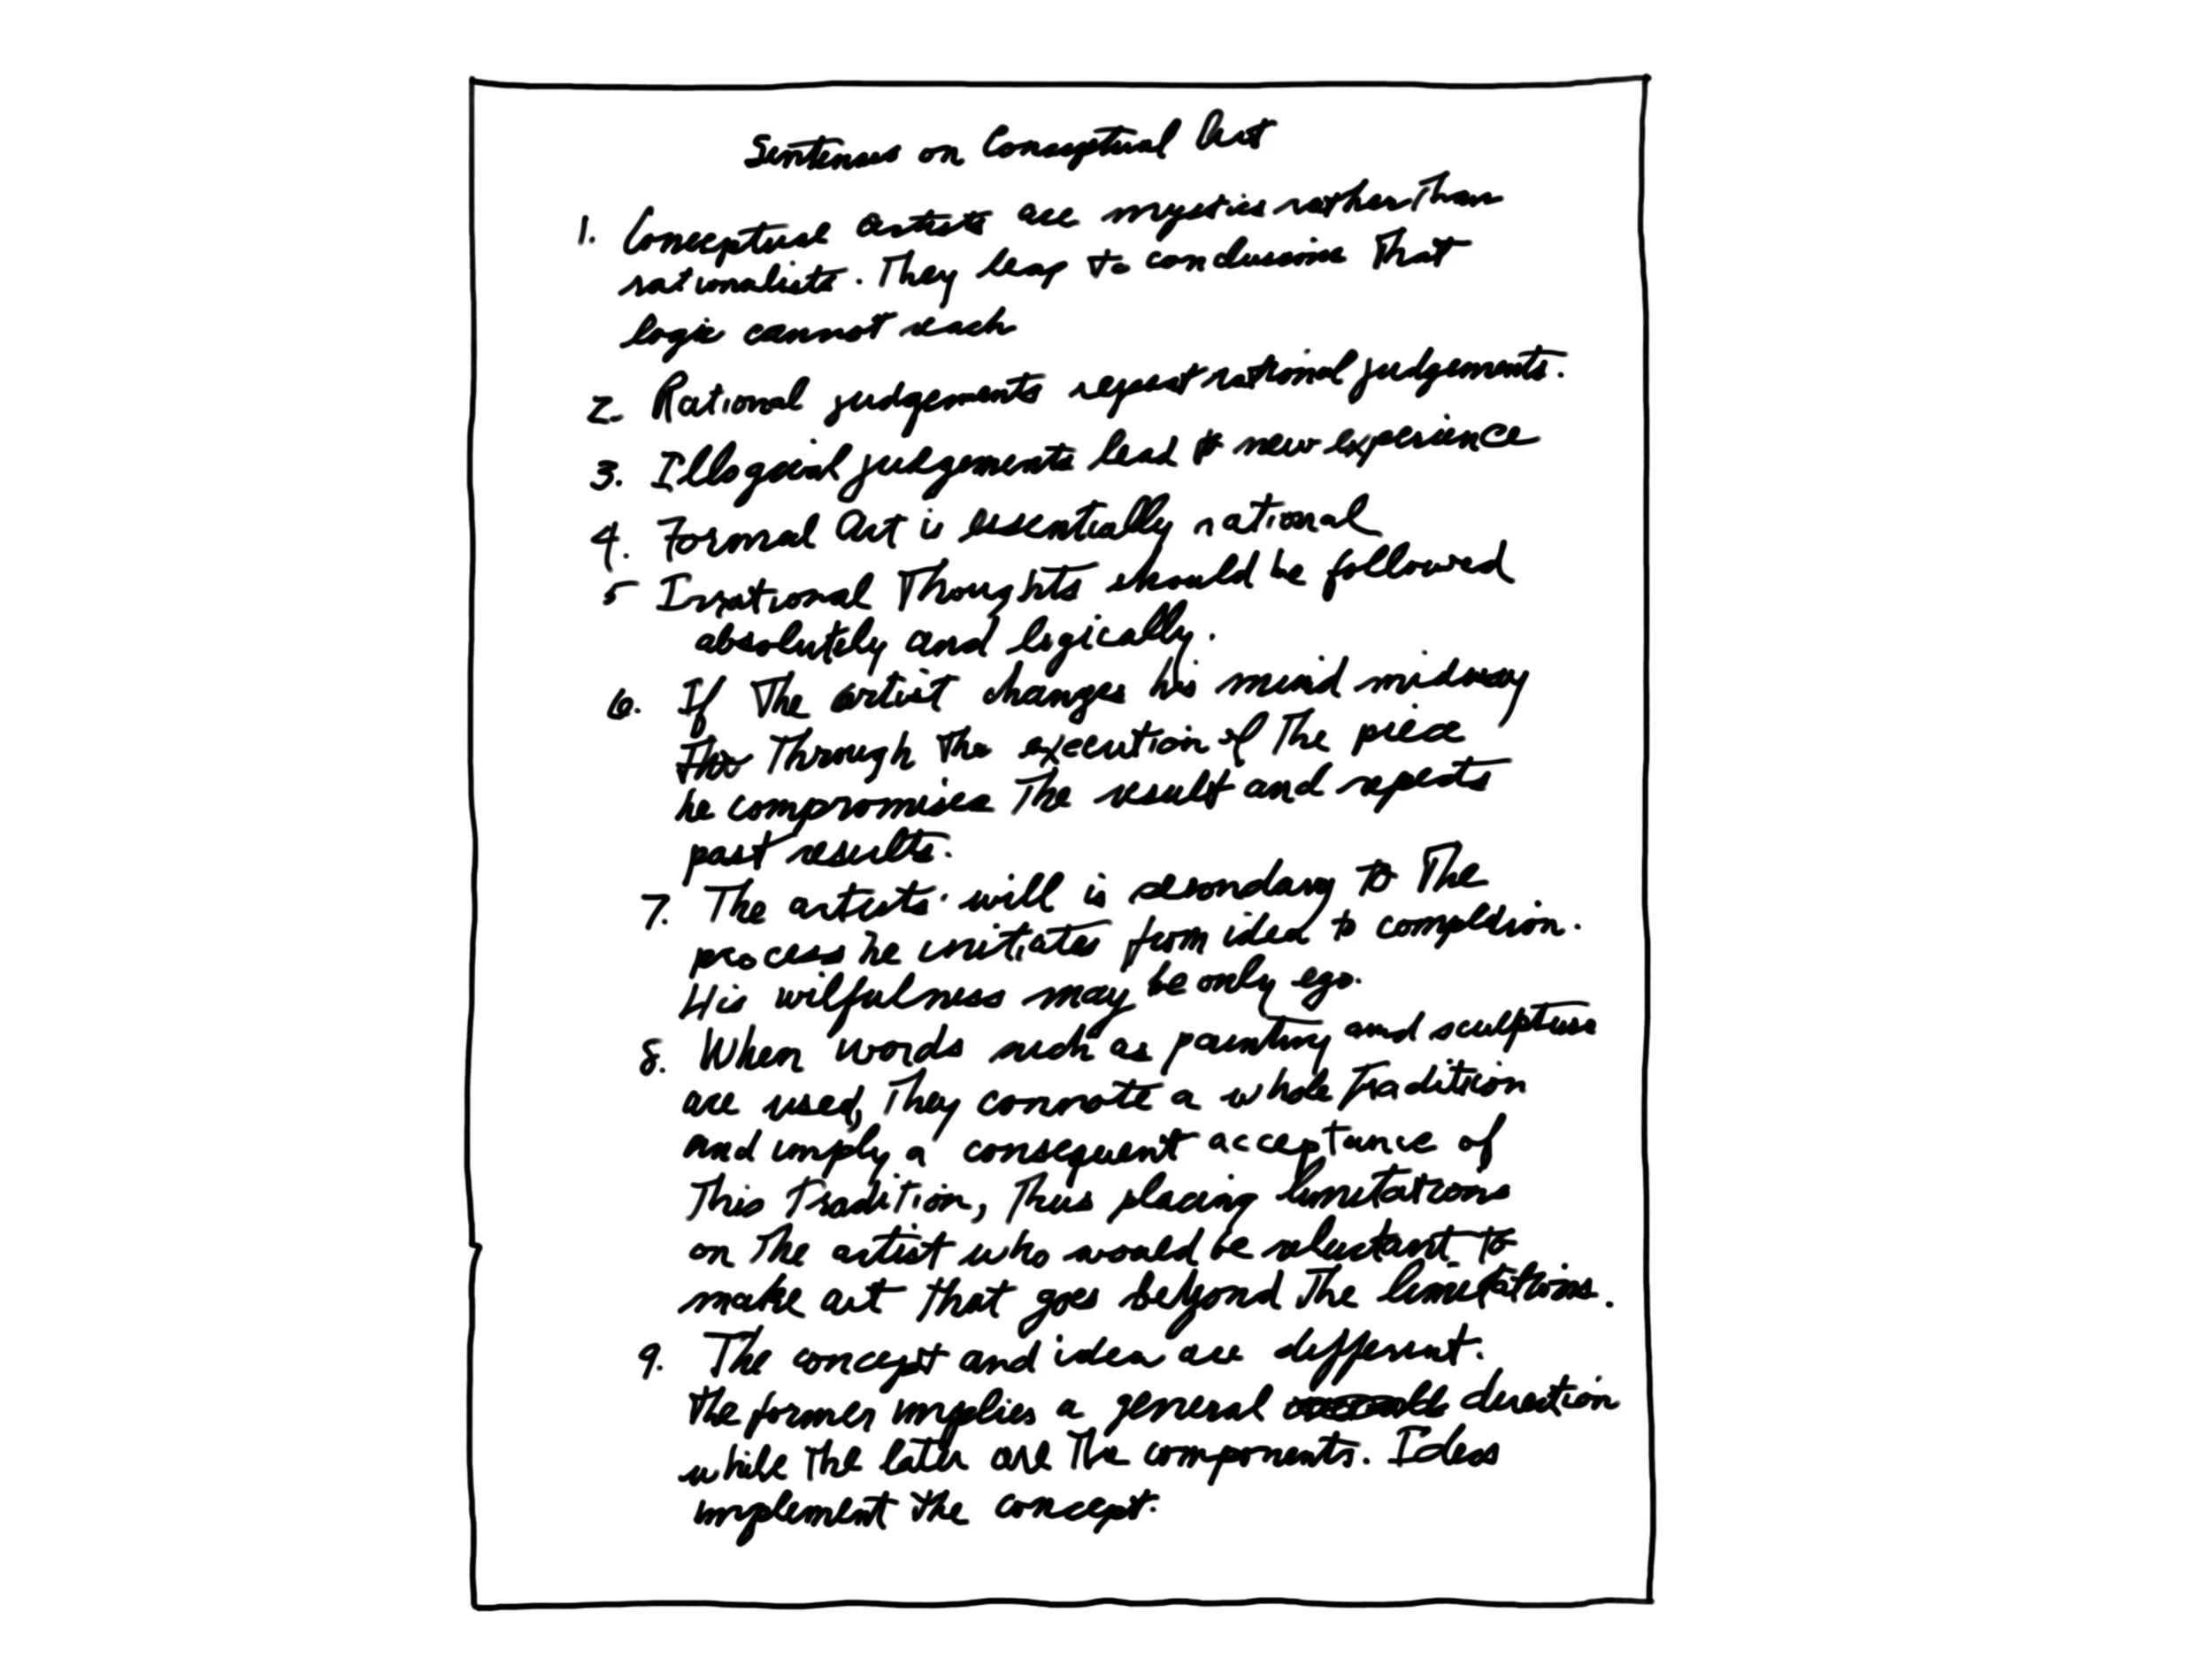 Sentences on Conceptual Art
1. Conceptual Artists are mystics rather Than
rationalists. They leap to conclusions That
logic cannot reach
2. Rational judgements repeat rational judgements.
3. Illogical judgements lead to new experience
4. Formal Art is essentially rational
5 Irrational Thoughts should be followed
absolutely and logically.
6. If The artist changes his mind midway
Thr Through The execution of The piece
he compromises The result and repeats
past results.
7. The artists' will is secondary to The
process he initiates from idea to completion.
His wilfulness may be only ego.
8. When words such as painting and sculpture
are used, They connote a whole Tradition
and imply a consequent acceptance of
This Tradition, Thus placing limitations
on The artist who would be reluctant To
make art That goes beyond The limitations.
9. The concept and idea are different.
The former implies a general direction
while The later are The components. Ideas
implement the concept.